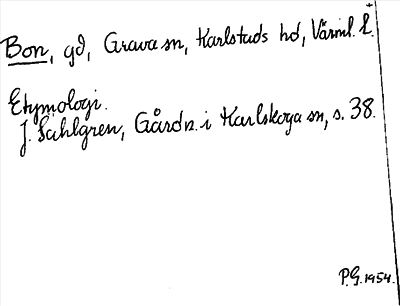 Bon, gd, Grava sn, Karlstads hd, Värml. l.
Etymologi.
J. Sahlgren, Gårdn. i Karlskoga sn, s. 38.
P.G. 1954.